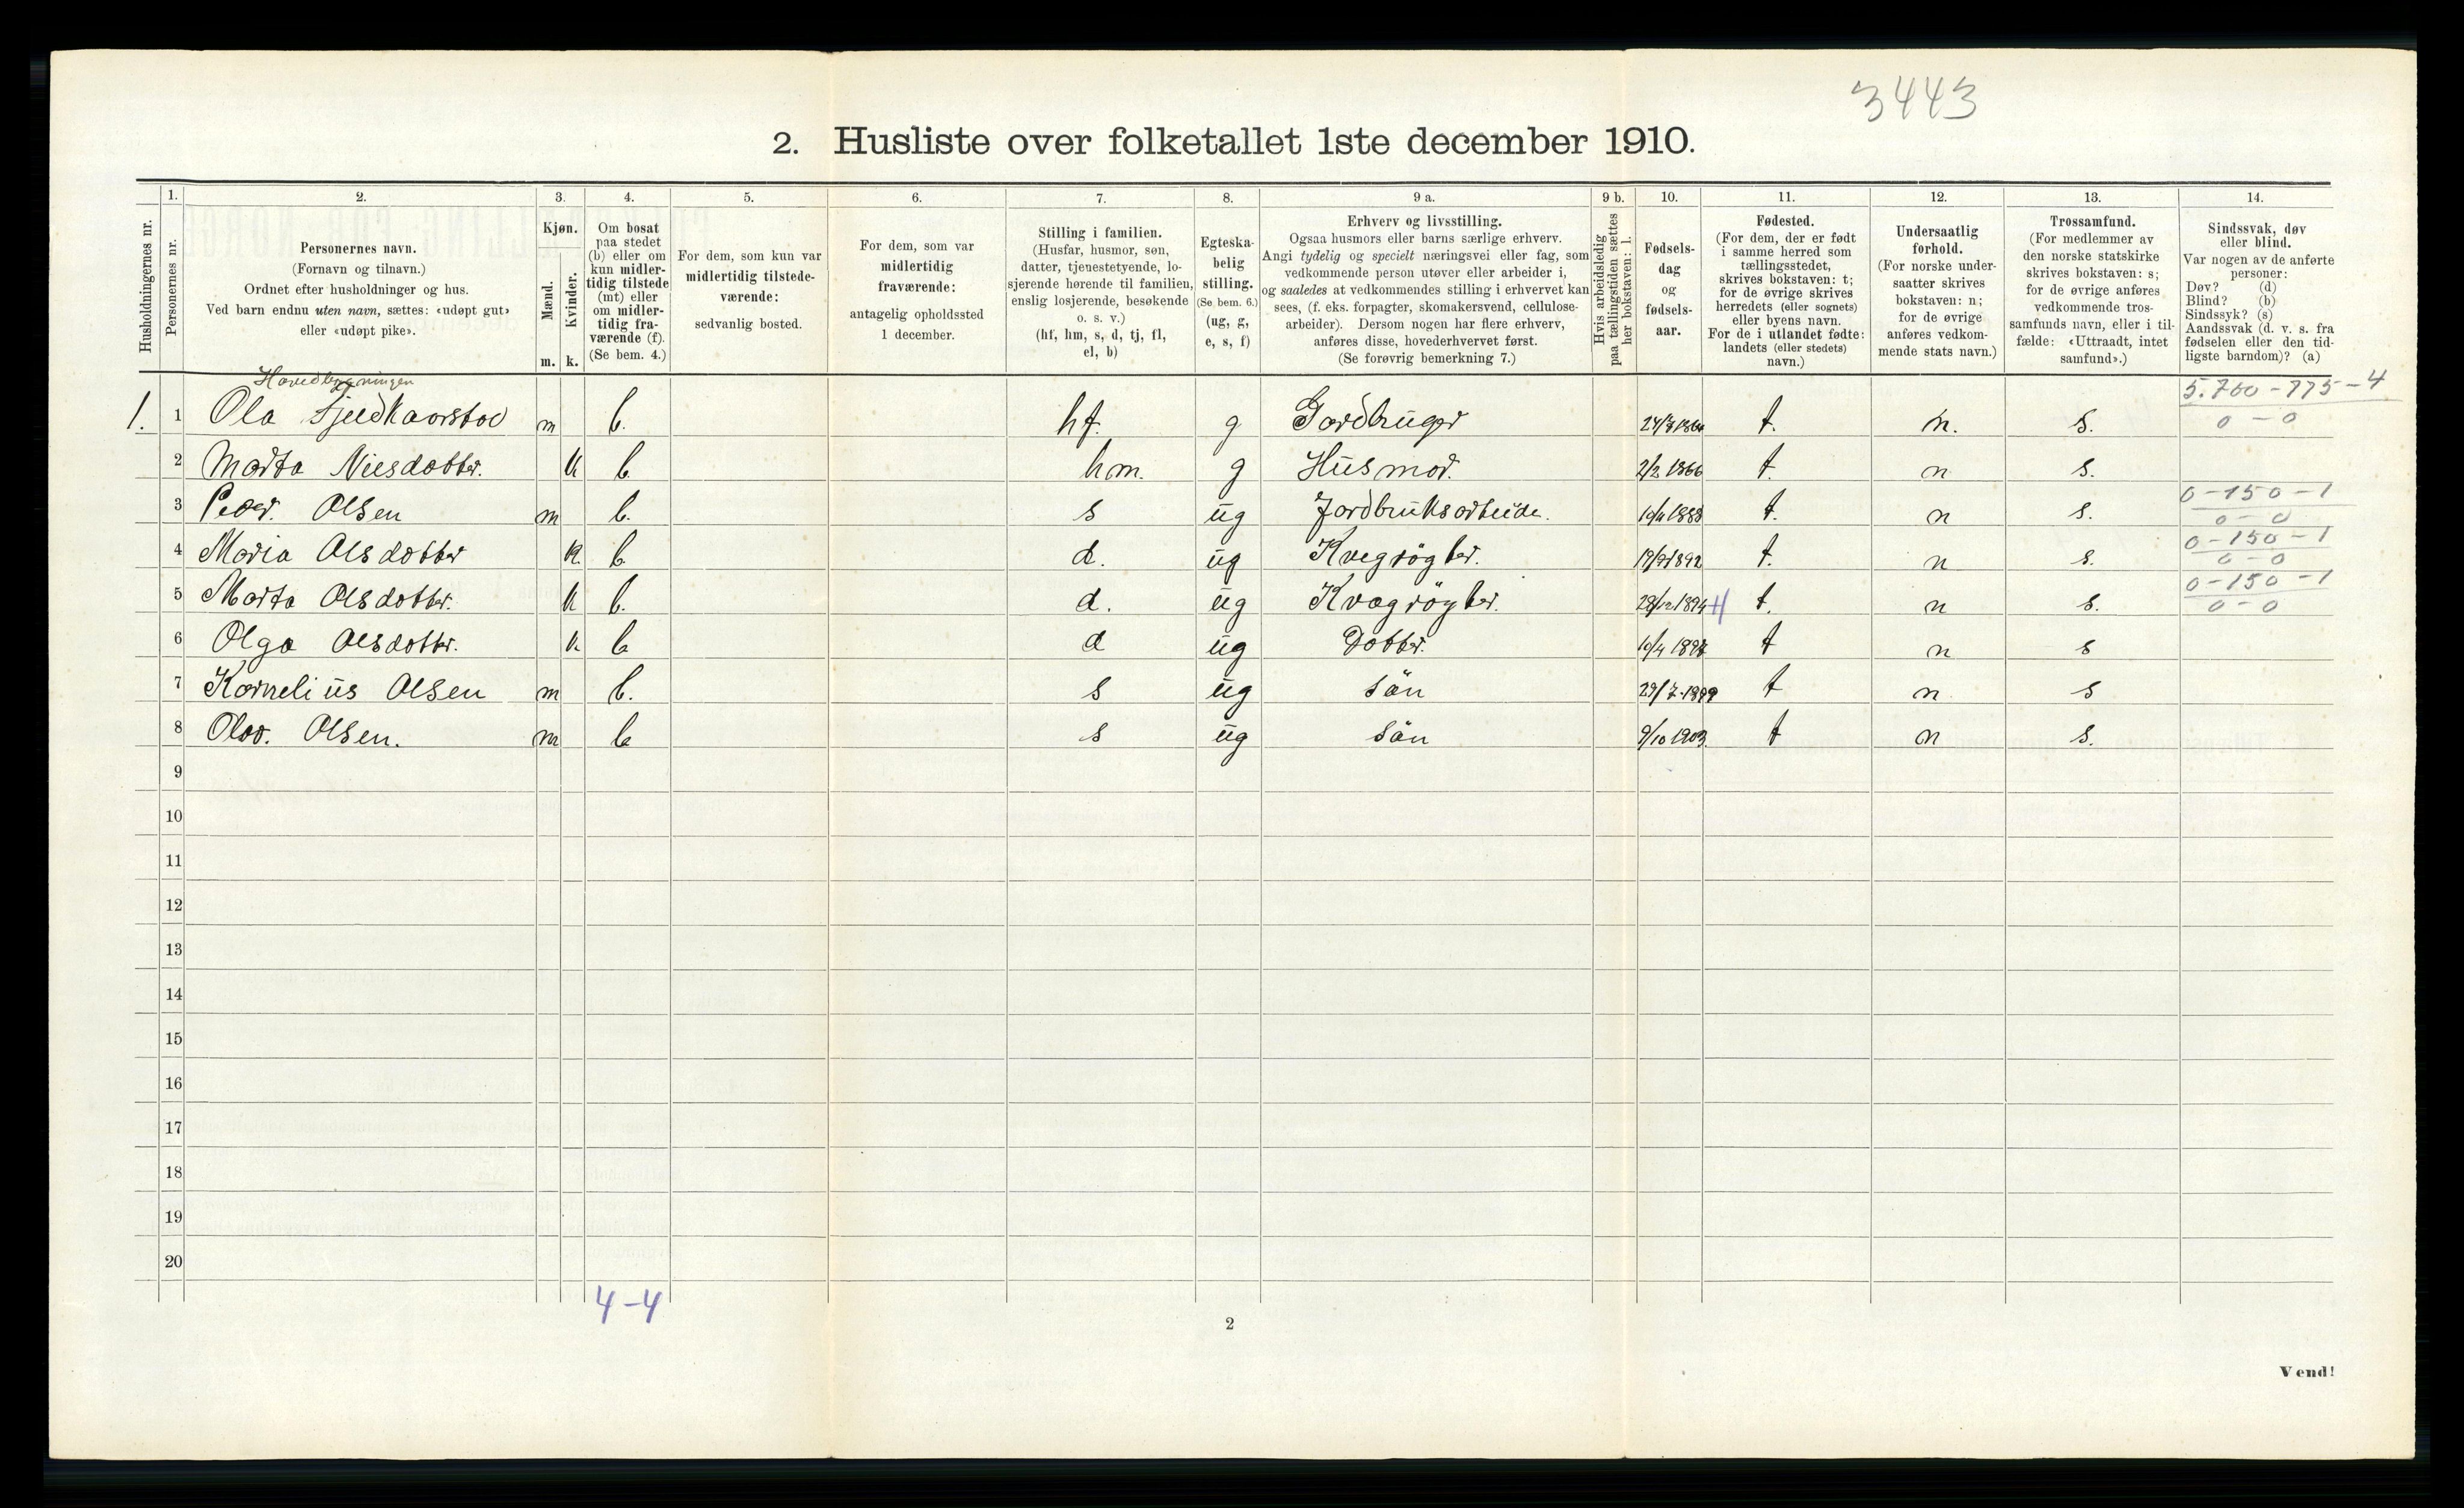 3443
2. Husliste over folketallet 1ste december 1910.
1. 2. 3. 4. 5. 6. 7. 8. 9 a. 9 b. 10. 11. 12. 13. 14.
Husholdningernes nr.
Personernes nr.
Personernes navn.
(Fornavn og tilnavn.)
Ordnet efter husholdninger og hus.
Ved barn endnu uten navn, sættes: «udøpt gut»
eller «udøpt pike».
Kjøn.
Mænd.
Kvinder.
m. k.
Om bosat
paa stedet
(b) eller om
kun midler-
tidig tilstede
(mt) eller
om midler-
tidig fra-
værende (f).
(Se bem. 4.)
For dem, som kun var
midlertidig tilstede-
værende:
sedvanlig bosted.
For dem, som var
midlertidig
fraværende:
antagelig opholdssted
1 december.
Stilling i familien.
(Husfar, husmor, søn,
datter, tjenestetyende, lo-
sjerende hørende til familien,
enslig losjerende, besøkende
o. s. v.)
(hf, hm, s, d, tj, fl,
el, b)
Egteska-
belig
stilling.
(Se bem. 6.)
(ug, g,
e, s, f)
Erhverv og livsstilling.
Ogsaa husmors eller barns særlige erhverv.
Angi tydelig og specielt næringsvei eller fag, som
vedkommende person utøver eller arbeider i,
og saaledes at vedkommendes stilling i erhvervet kan
sees, (f. eks. forpagter, skomakersvend, cellulose-
arbeider). Dersom nogen har flere erhverv,
anføres disse, hovederhvervet først.
(Se forøvrig bemerkning 7.)
Hvis arbeidsledig
paa tællingstiden sættes
her bokstaven: l.
Fødsels-
dag
og
fødsels-
aar.
Fødested.
(For dem, der er født
i samme herred som
tællingsstedet,
skrives bokstaven: t;
for de øvrige skrives
herredets (eller sognets)
eller byens navn.
For de i utlandet fødte:
landets (eller stedets)
navn.)
Undersaatlig
forhold.
(For norske under-
saatter skrives
bokstaven: n;
for de øvrige
anføres vedkom-
mende stats navn.)
Trossamfund.
(For medlemmer av
den norske statskirke
skrives bokstaven: s;
for de øvrige anføres
vedkommende tros-
samfunds navn, eller i til-
fælde: «Uttraadt, intet
samfund».)
Sindssvak, døv
eller blind.
Var nogen av de anførte
personer:
Døv? (d)
Blind? (b)
Sindssyk? (s)
Aandssvak (d. v. s. fra
fødselen eller den tid-
ligste barndom)? (a)
Hovedbygningen
5.700 - 775 - 4
1. 1 Ola m b. hf. g t. n. s. 0 - 0
2 Marta k b. hm. g Husmor. 2/2 1866 t. n s.
0 - 150 - 1
3 Peder. Olsen m b. s ug Jordbruksarbeide. t. n s. 0 - 0
0 - 150 - 1
4 Maria Olsdotter k. b. d. ug t. n s. 0 - 0
0 - 150 - 1
5 Marta Olsdotter. k b. d. ug t. n s. 0 - 0
6 Olga Olsdotter. k b d ug Dotter. t n s
7 Kornelius Olsen m b. s ug Sön t n. s
8 Olav. Olsen. m b s ug Sön 9/10 1903. t n s.
9
10
11
12
13
14
15
16
17
18
19
20
4-4
2
Vend!